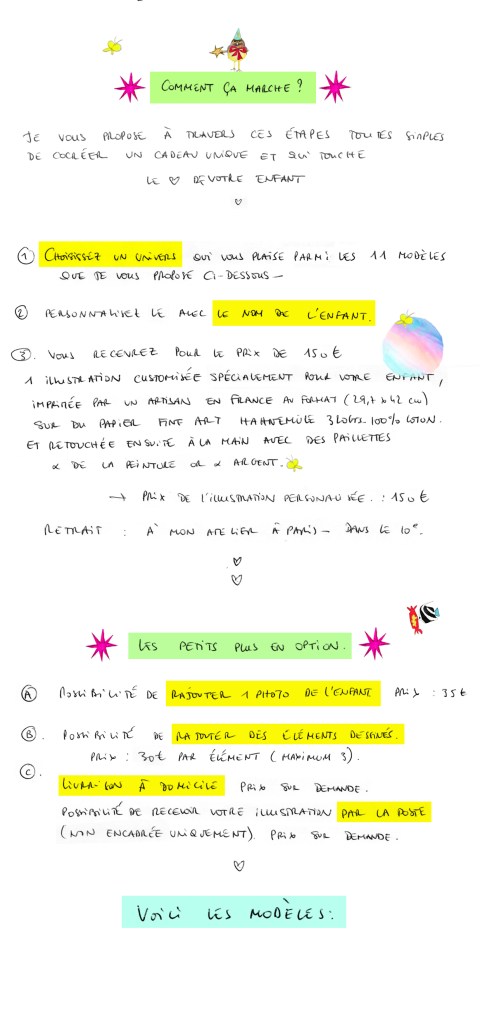 COMMENT ÇA MARCHE ?
JE VOUS PROPOSE À TRAVERS CES ÉTAPES TOUTES SIMPLES
DE COCRÉER UN CADEAU UNIQUE ET QUI TOUCHE
LE ♡ DE VOTRE ENFANT
① CHOISISSEZ UN UNIVERS QUI VOUS PLAISE PARMI LES 11 MODÈLES
QUE JE VOUS PROPOSE CI-DESSOUS –
② PERSONNALISEZ LE AVEC LE NOM DE L'ENFANT.
③. VOUS RECEVREZ POUR LE PRIX DE 150 €
1 ILLUSTRATION CUSTOMISÉE SPÉCIALEMENT POUR VOTRE ENFANT,
IMPRIMÉE PAR UN ARTISAN EN FRANCE AU FORMAT (29,7 x 42 cm)
SUR DU PAPIER FINE ART HAHNEMÜLE 308GRS 100% COTON.
ET RETOUCHÉE ENSUITE À LA MAIN AVEC DES PAILLETTES
& DE LA PEINTURE OR & ARGENT.
→ PRIX DE L'ILLUSTRATION PERSONALISÉE. : 150 €
RETRAIT : À MON ATELIER À PARIS – DANS LE 10e.
LES PETITS PLUS EN OPTION.
Ⓐ POSSIBILITÉ DE RAJOUTER 1 PHOTO DE L'ENFANT PRIX : 35 €
Ⓑ. POSSIBILITÉ DE RAJOUTER DES ÉLÉMENTS DESSINÉS.
PRIX : 30€ PAR ÉLÉMENT (MAXIMUM 3).
Ⓒ.
LIVRAISON À DOMICILE PRIX SUR DEMANDE.
POSSIBILITÉ DE RECEVOIR VOTRE ILLUSTRATION PAR LA POSTE
(NON ENCADRÉE UNIQUEMENT). PRIX SUR DEMANDE.
VOICI LES MODÈLES: